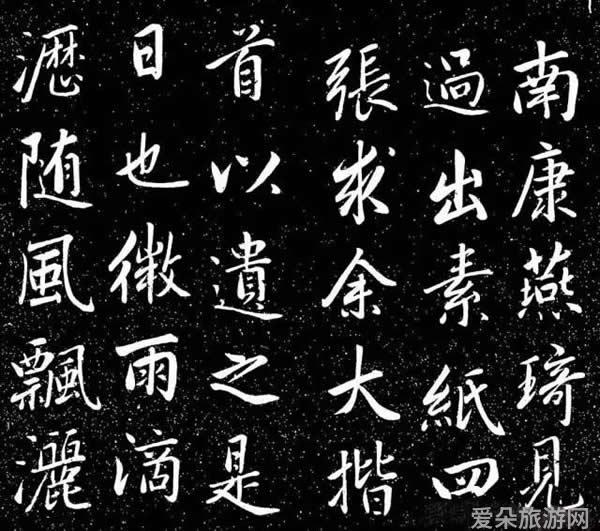 南康燕琦見
過出素紙四
張求余大揩
首以遺之是
日也微雨滴
瀝随風飄灑
爱朵旅游网